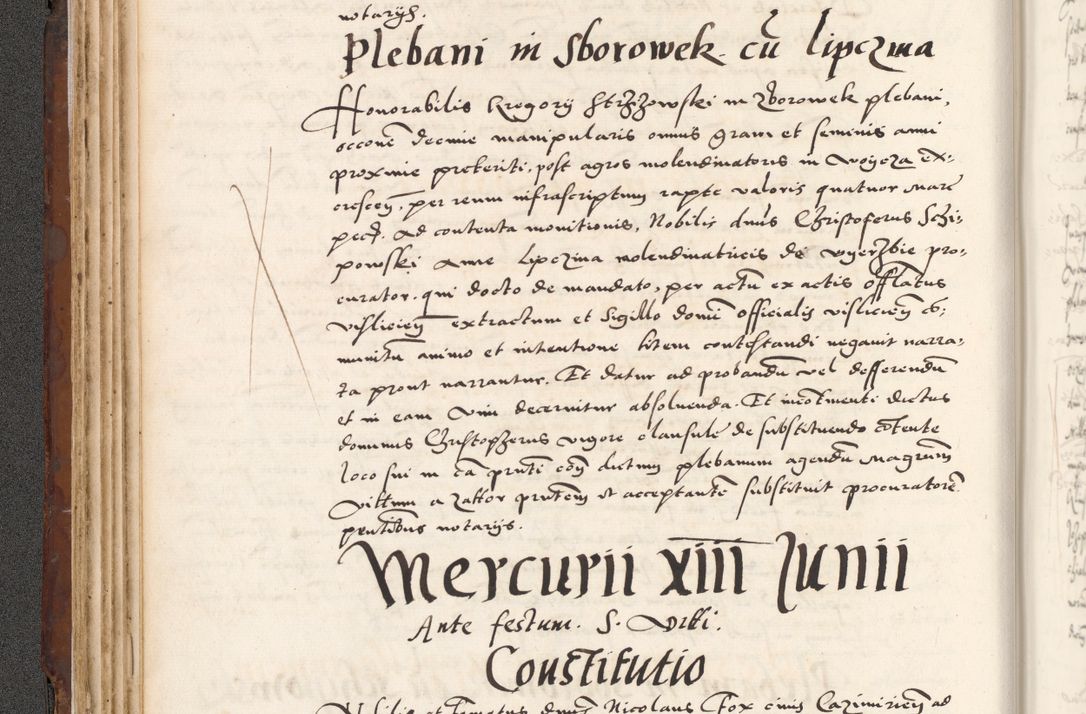 notarys.
Plebani in Sborowek cū lipczina
Honorabilis Gregorij Strzizowski in Zborowek plebani,
occonē decime manipularis omnis grani et seminis anni
proxime preteriti, post agros molendinatoris in
crescen, per reum infrascriptum rapte valoris quatuor marc
pecū. Ad contenta monitionis, Nobilis dnus Christoferus Schi-
powski Anne Lipczina molendinatricis de pro-
curator. qui docto de mandato, per actū ex actis offlatus
visliciēn extractum et sigillo domi officialis visliciēn co-
munitū animo et intentione litem contestandi negavit narra-
ta prout narrantur. Et datur ad probandū vel defferendū
et in eam vim decernitur absoluenda. Et incōtinenti dictus
dominus Christopherus vigore clausule de substituendo cōtente
loco sui in cā prnti cōn dictum plebanum agendū magrum
vittum a zattor prntem et acceptantē substituit procuratorē
prntibus notarijs.
Mercurii xiii Iunii
Ante festum. S. Viti.
Constitutio
Nobilis et famatus dnus Nicolaus Fox civis Cazimirien ad